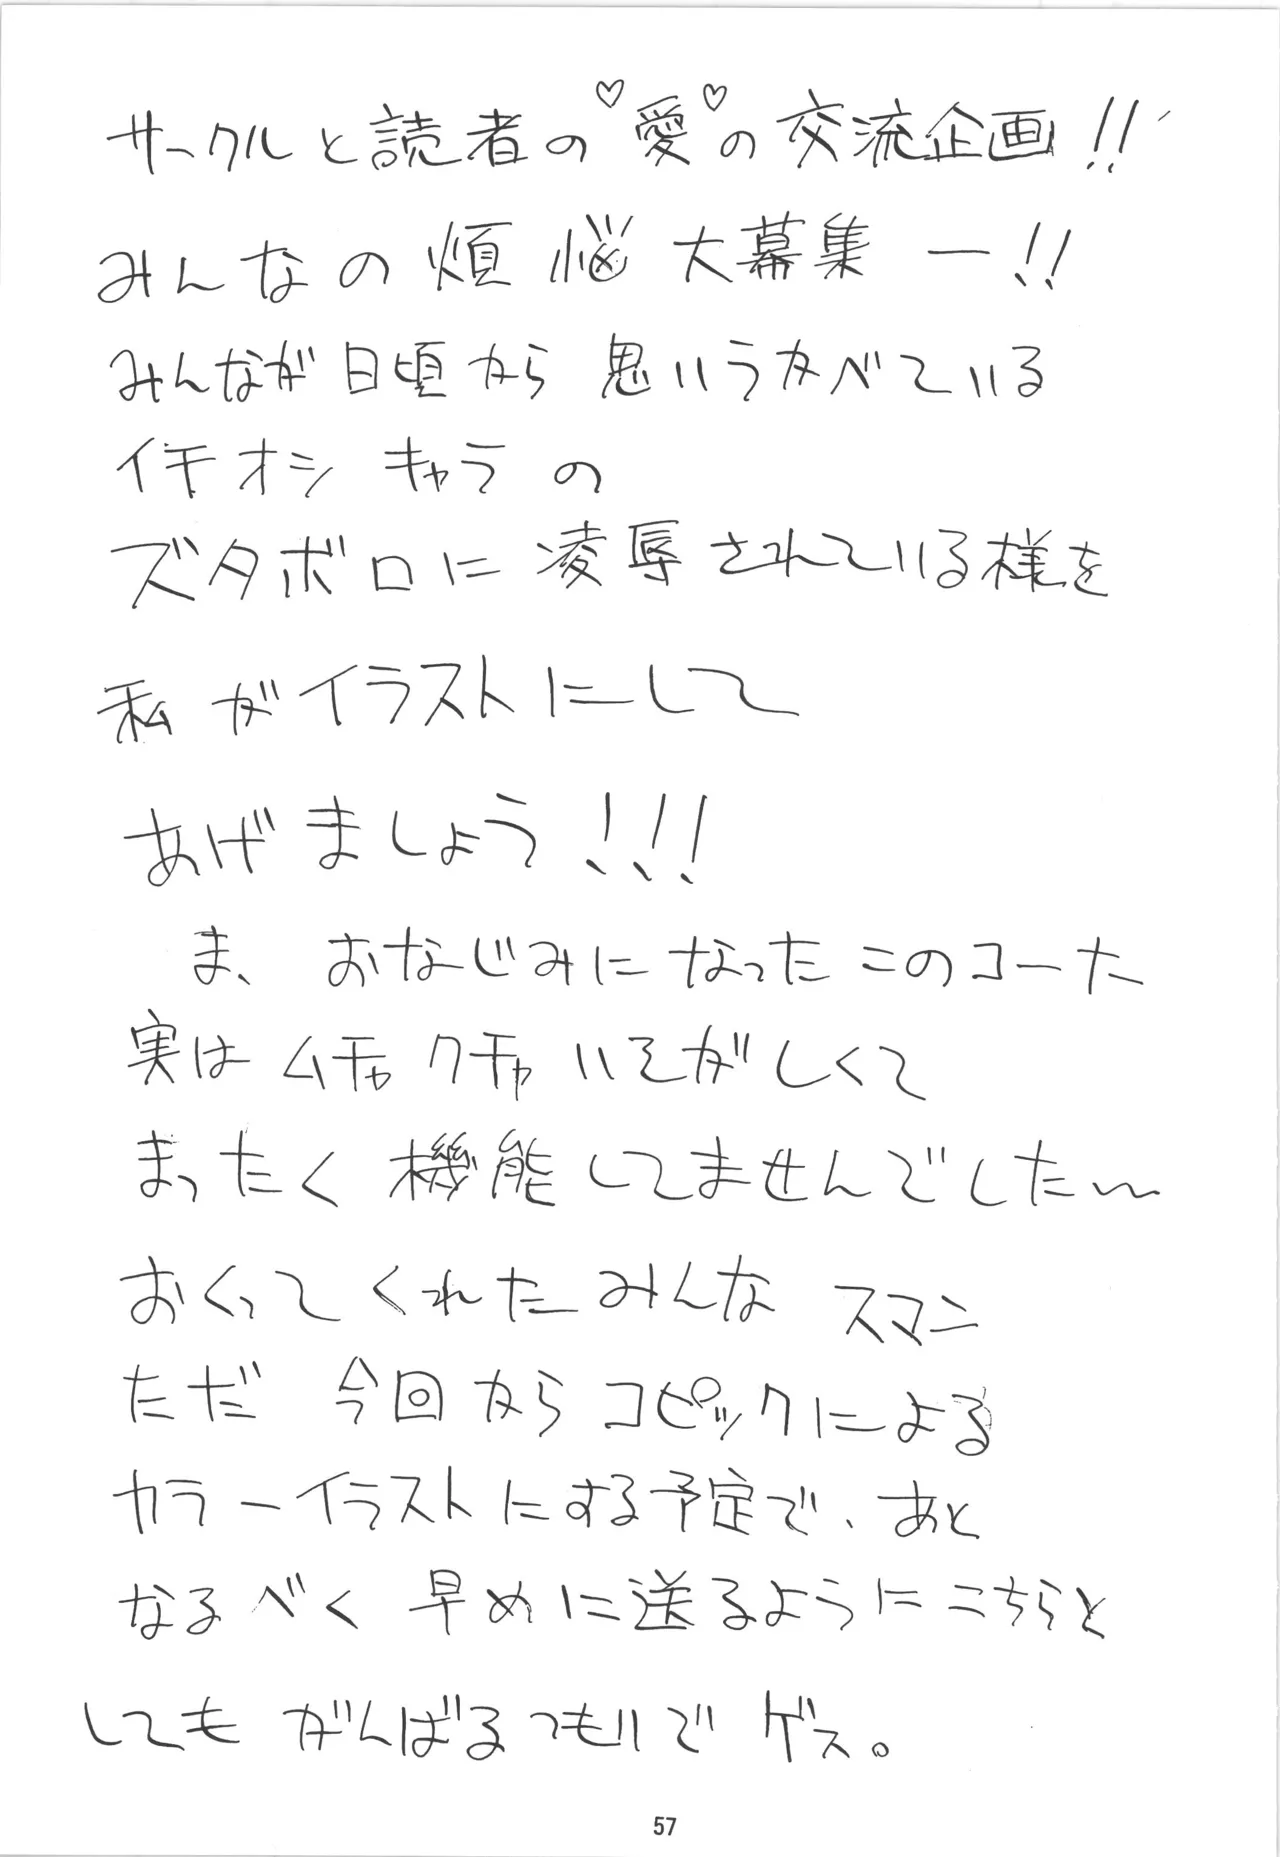 サークルと読者の♡愛♡の交流企画!!
みんなの煩悩大募集ー!!
みんなが日頃から思いうかべている
イチオシキャラの
ズタボロに凌辱されている様を
私がイラストにして
あげましょう!!!
ま、おなじみになったこのコーナー
実はムチャクチャいそがしくて
まったく機能してませんでした〜
おくってくれたみんなスマン
ただ今回からコピックによる
カラーイラストにする予定で、あと
なるべく早めに送るようにこちらと
してもがんばるつもりでゲス。
57